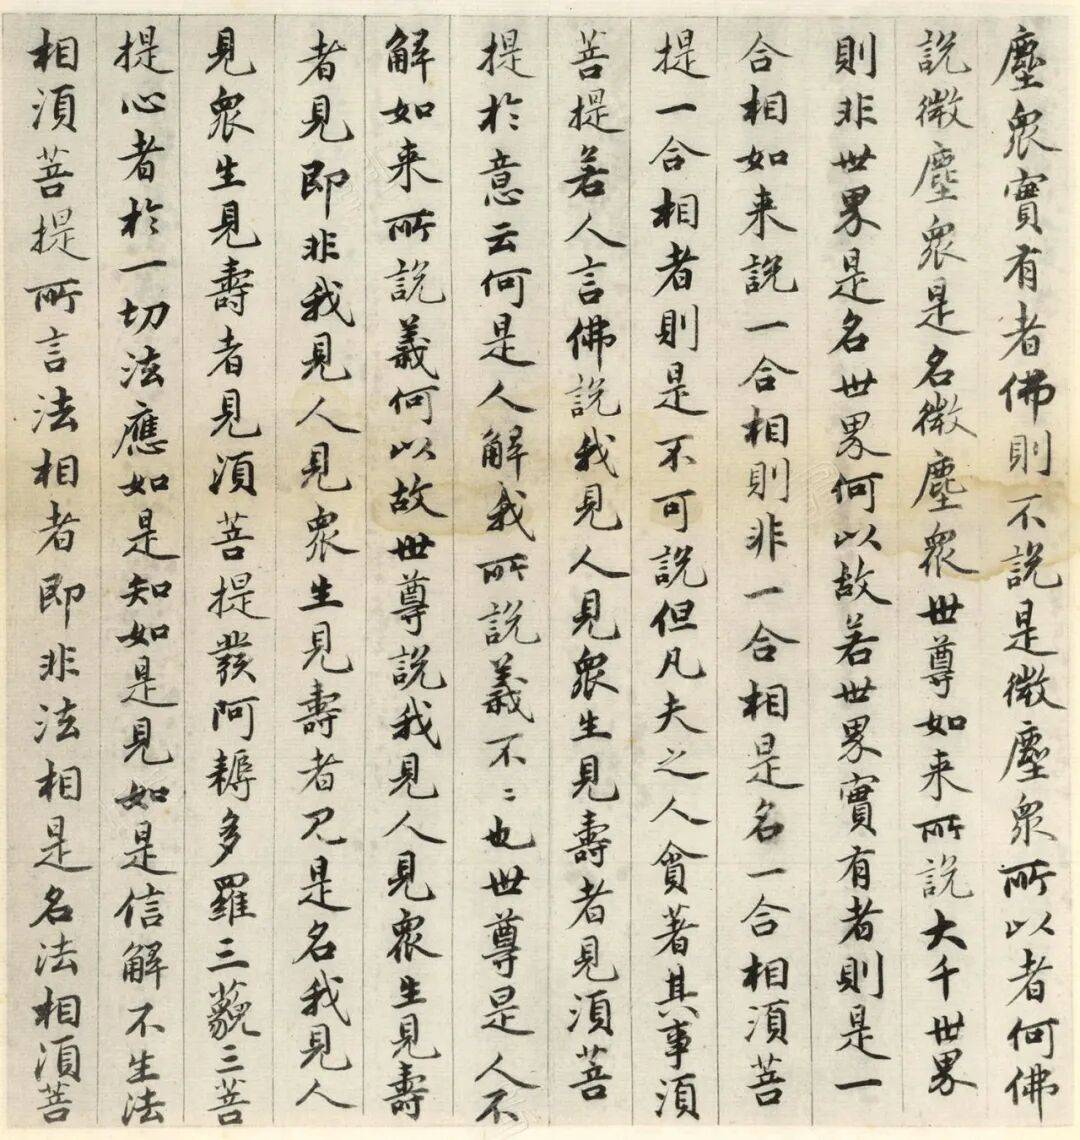 塵眾實有者佛則不說是微塵眾所以者何佛
說微塵眾是名微塵眾世尊如来所說大千世界
則非世界是名世界何以故若世界實有者則是一
合相如来說一合相則非一合相是名一合相須菩
提一合相者則是不可說但凡夫之人貪著其事須
菩提若人言佛說我見人見眾生見壽者見須菩
提於意云何是人解我所說義不〻也世尊是人不
解如来所說義何以故世尊說我見人見眾生見壽
者見即非我見人見眾生見壽者見是名我見人
見眾生見壽者見須菩提發阿耨多羅三藐三菩
提心者於一切法應如是知如是見如是信解不生法
相須菩提所言法相者即非法相是名法相須菩